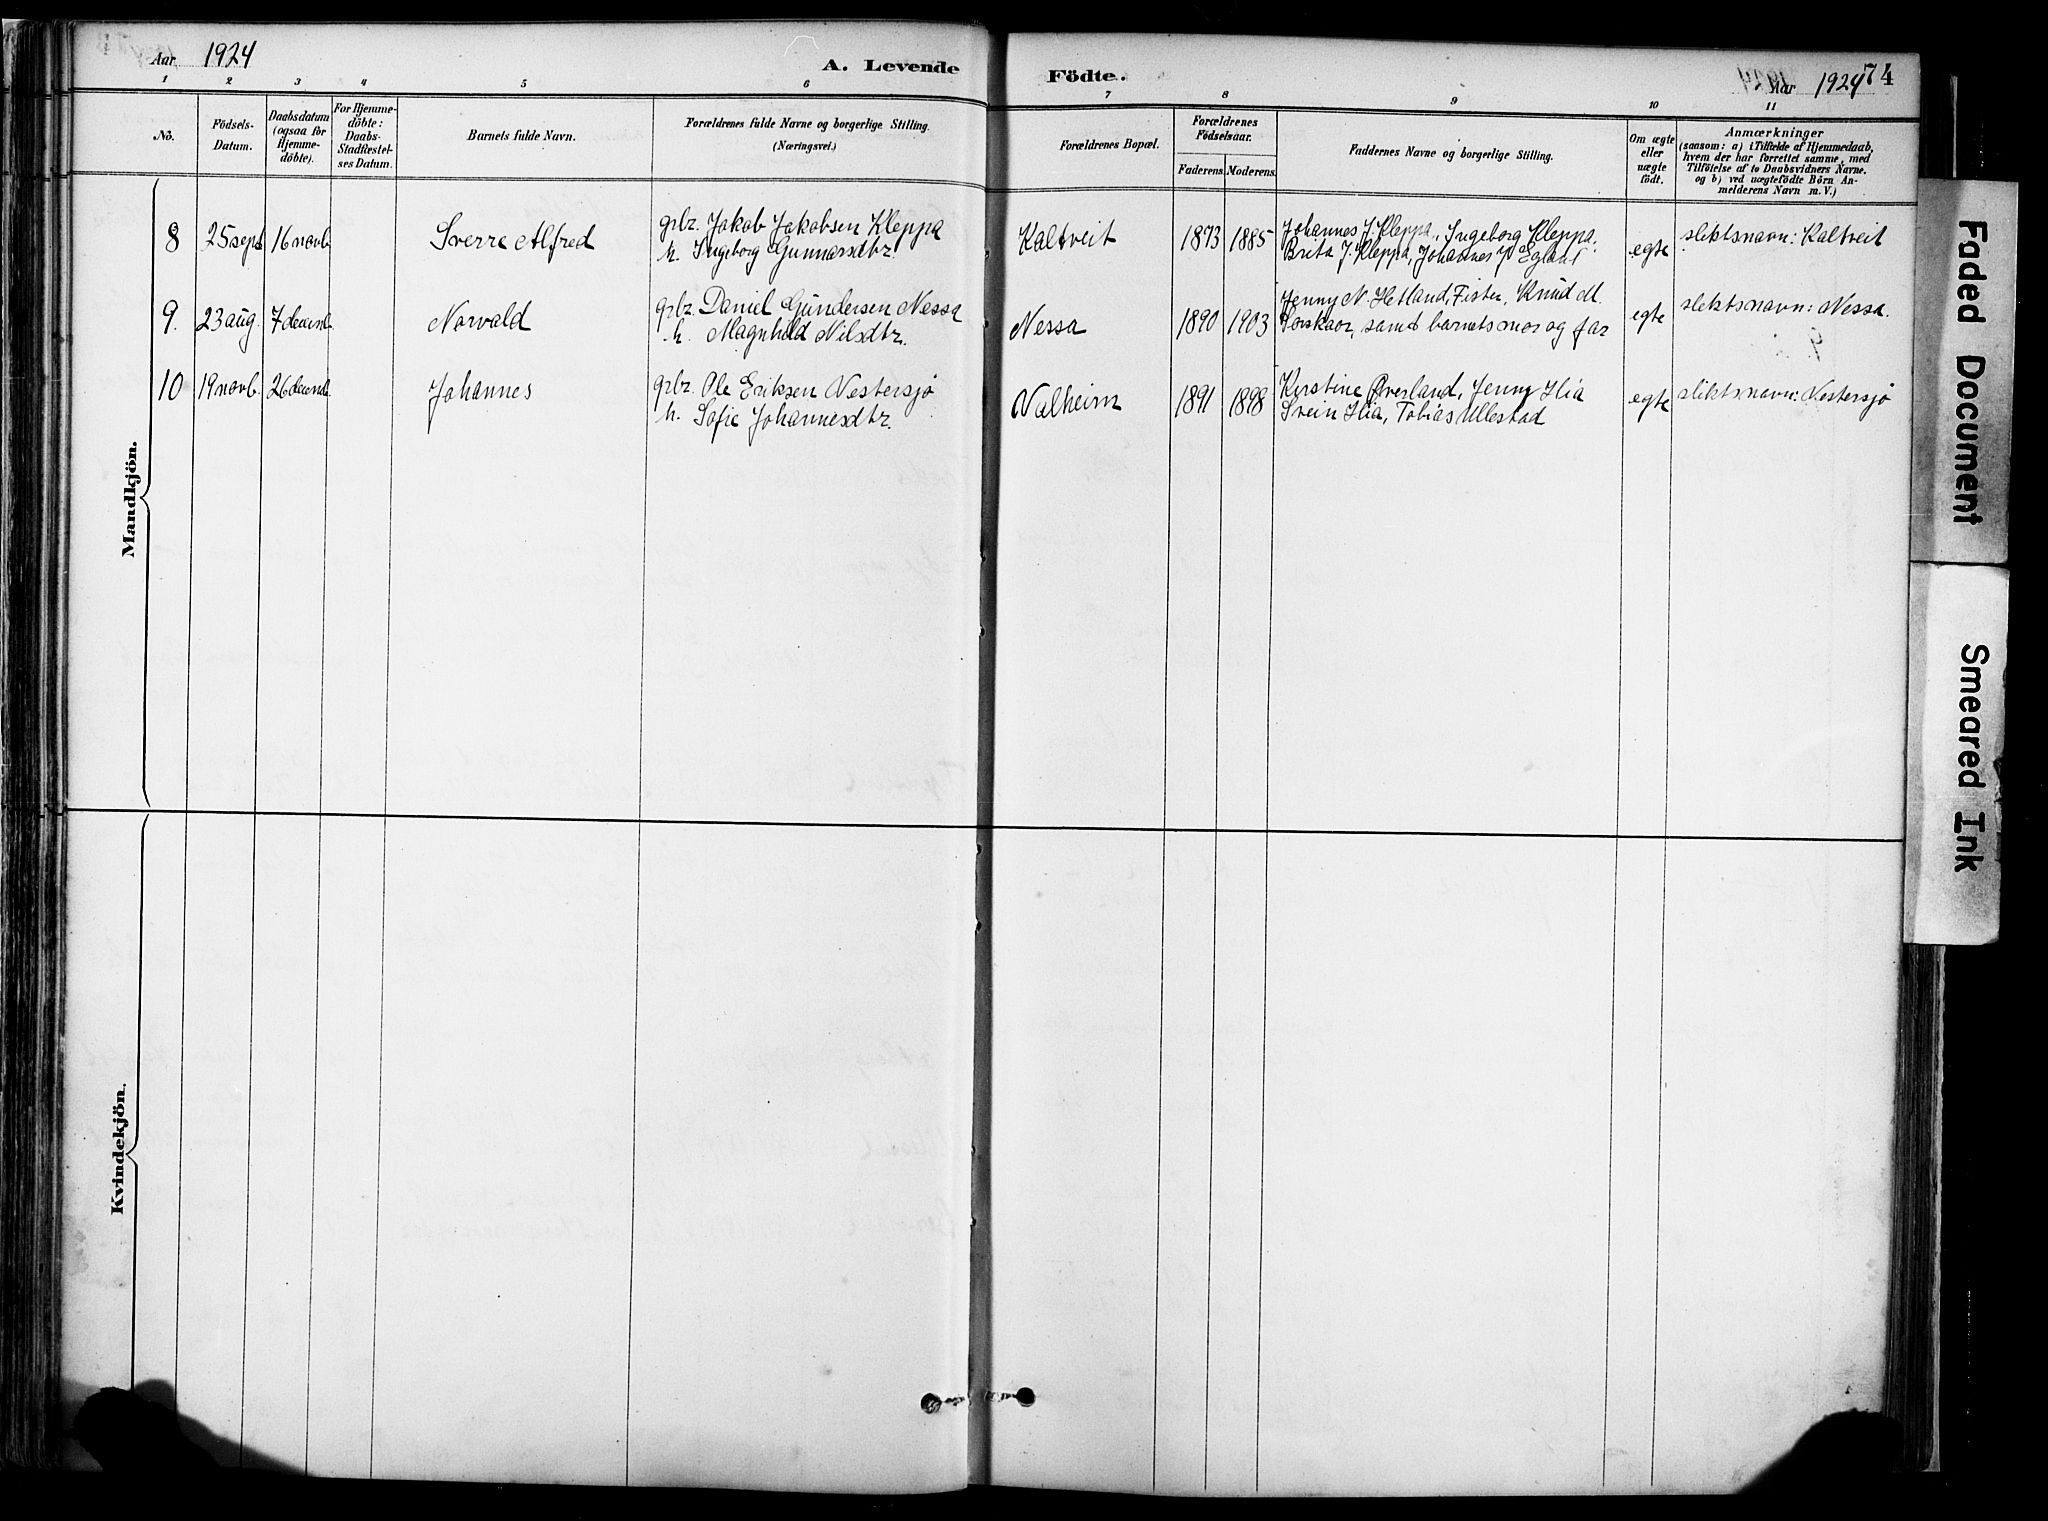 Aar 1924
A. Levende
Födte.
Aar 1924
74
1
2
3
4
5
6
7
8
9
10
11
No.
Födsels-
Datum.
Daabsdatum
(ogsaa for
Hjemme-
döbte).
For Hjemme-
döbte:
Daabs-
Stadfæstel-
ses Datum.
Barnets fulde Navn.
Forældrenes fulde Navne og borgerlige Stilling.
(Næringsvei.)
Forældrenes Bopæl.
Forældrenes
Födselsaar.
Faderens.
Moderens.
Faddernes Navne og borgerlige Stilling.
Om ægte
eller
uægte
födt.
Anmærkninger
(saasom: a) i Tilfælde af Hjemmedaab,
hvem der har forrettet samme, med
Tilföielse af to Daabsvidners Navne.
og b) ved uægtefödte Börn An-
melderens Navn m. V.)
Mandkjön.
8
25 sept
16 novb
Sverre Alfred
grbr. Jakob Jakobsen Kleppa
h. Ingeborg Gunnarsdtr.
Kaltveit
1873
1885
Johannes J. Kleppa, Ingeborg Kleppa,
Brita J. Kleppa, Johannes
egte
slektsnavn: Kaltveit
9.
23 aug.
7 decemb.
Norvald
grbr. Daniel Gundersen Nessa
h. Magnhild Nilsdtr.
Nessa
1890
1903
Jenny N. Hetland, Fister, Knud M.
samt barnets mor og far
egte
slektsnavn: Nessa.
10
19 novb.
26 decemb.
Johannes
grbr. Ole Eriksen Vestersjø
h. Sofie Johannesdtr.
Valheim
1891
1898
Kirstine Øverland, Jenny Hia
Svein Hia, Tobias Ullestad
egte
slektsnavn: Vestersjø
Kvindekjön.
Faded Document
Smeared Ink